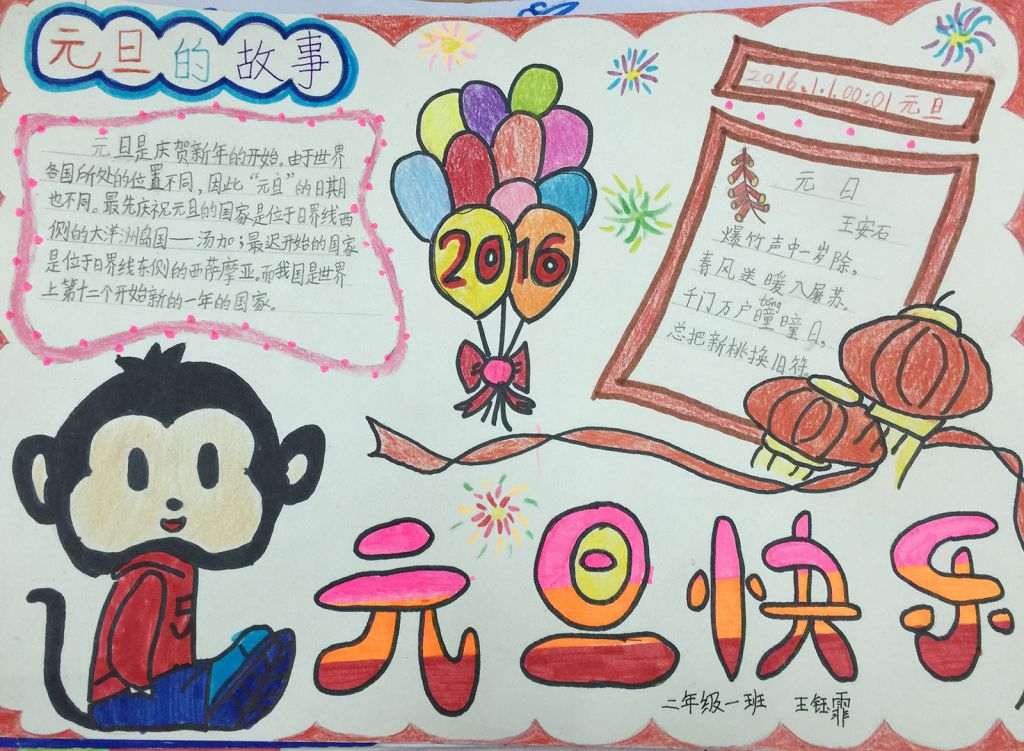 元旦的故事
元旦是庆贺新年的开始。由于世界
各国所处的位置不同，因此“元旦”的日期
也不同。最先庆祝元旦的国家是位于日界线西
侧的大洋洲岛国——汤加；最迟开始的国家
是位于日界线东侧的西萨摩亚。而我国是世界
上第十二个开始新的一年的国家。
2016
2016.1.1.00:01元旦
元日
王安石
爆竹声中一岁除，
春风送暖入屠苏。
tóng
千门万户曈曈日，
总把新桃换旧符。
5
元旦快乐
二年级一班 王钰霏